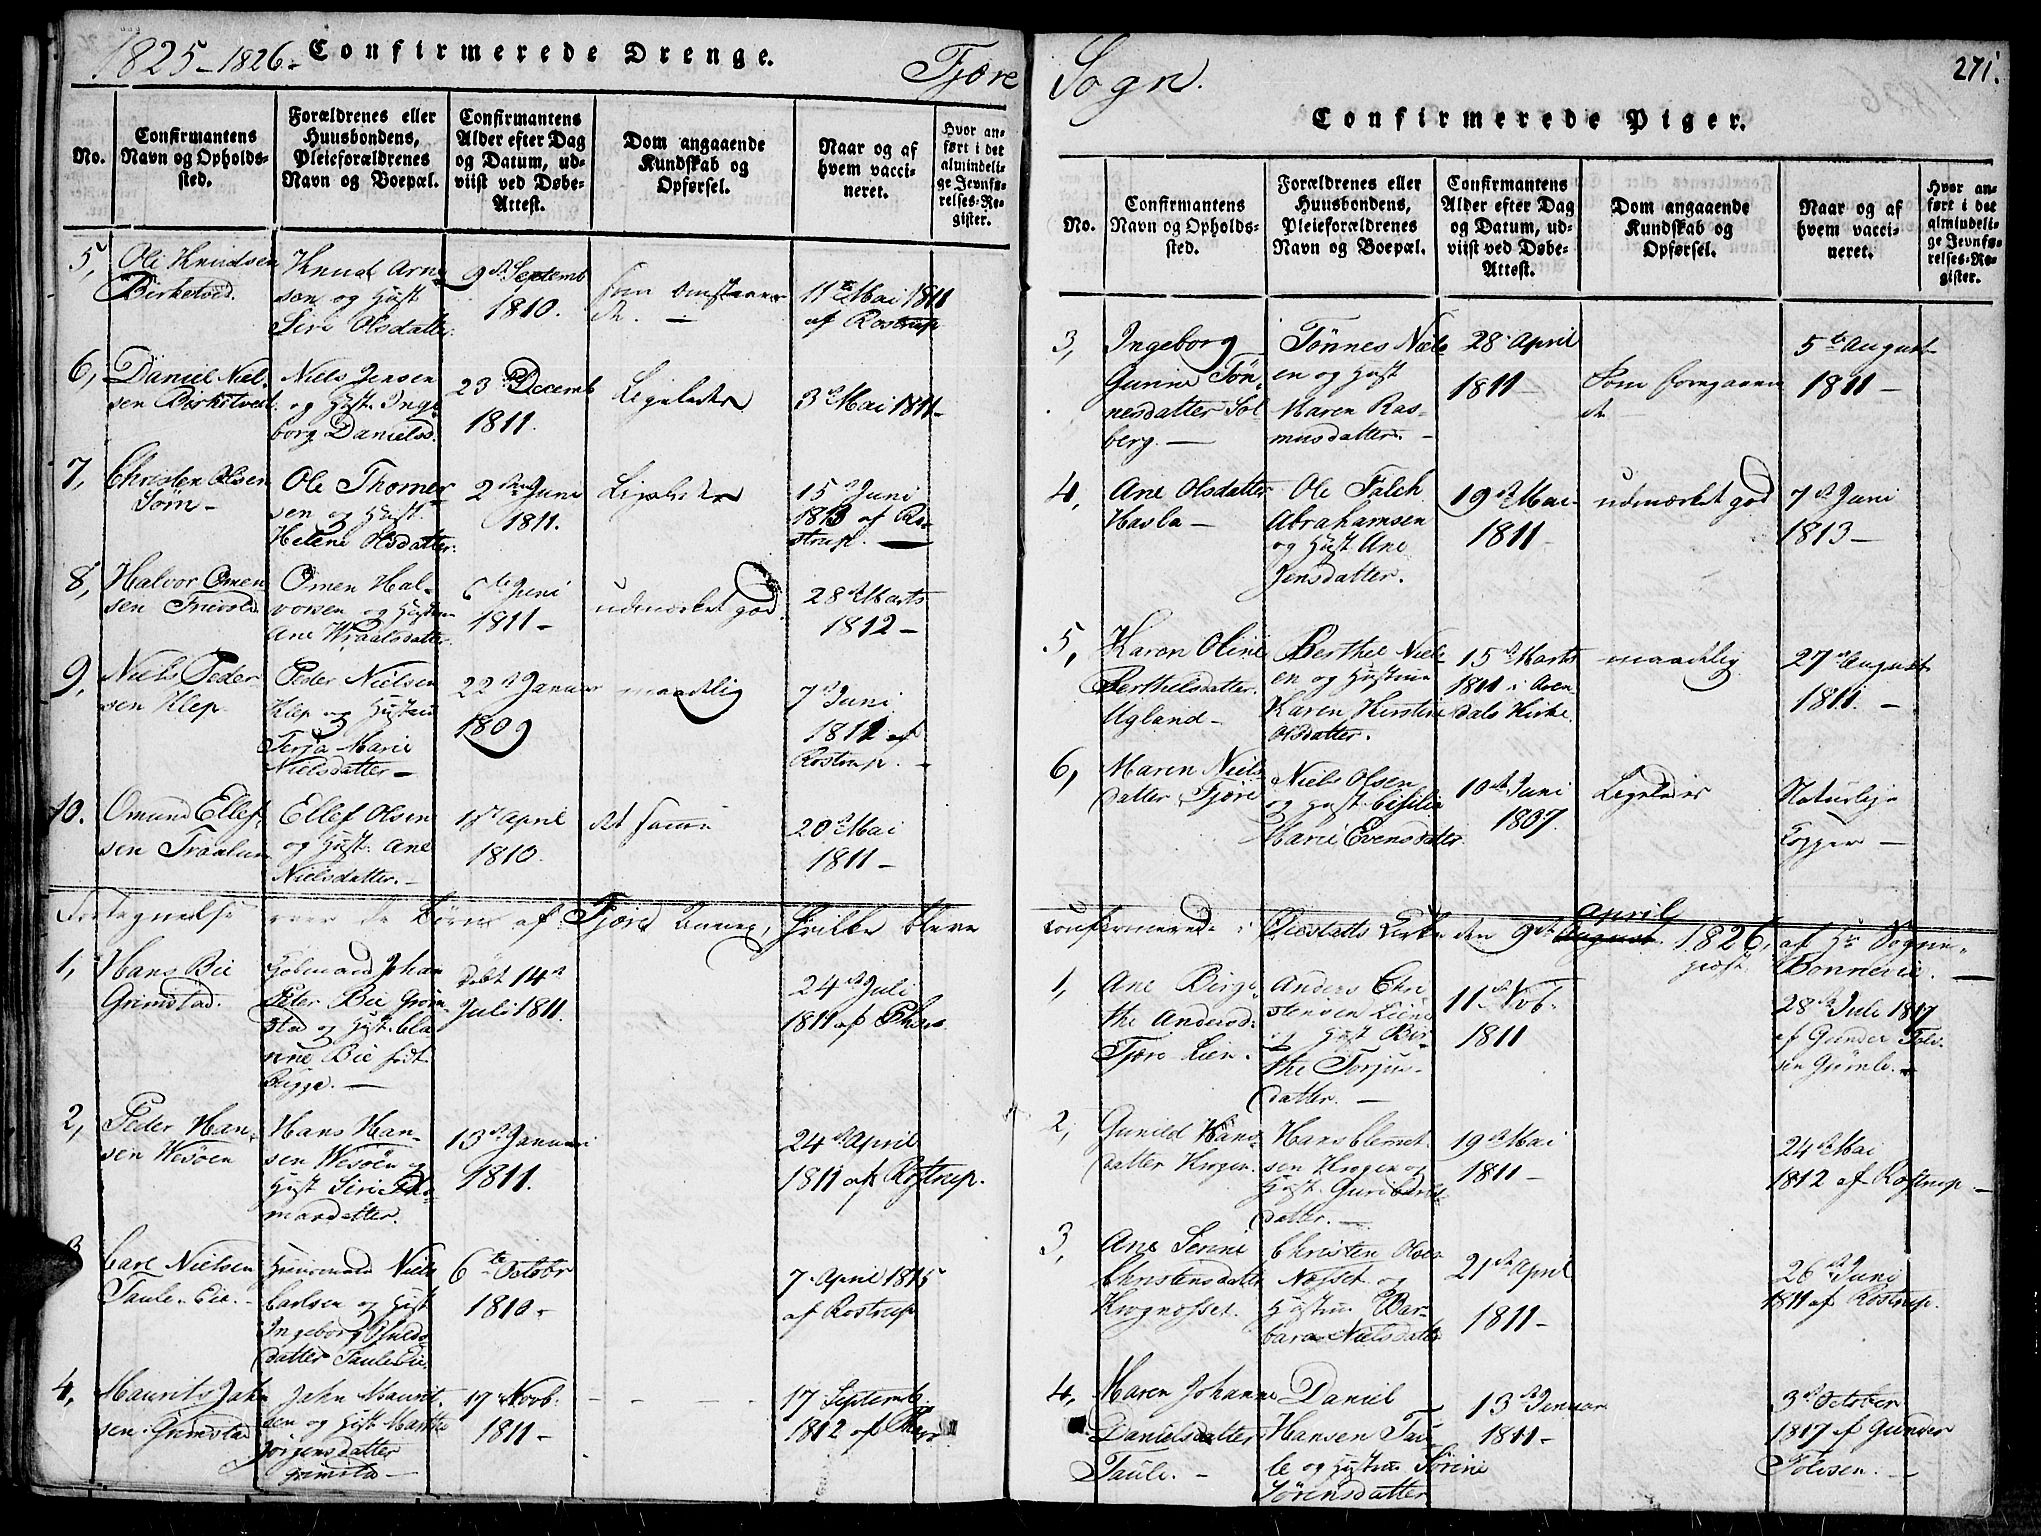 1825-1826.
Confirmerede Drenge.
Fjære
No.
Confirmantens
Navn og Opholds-
sted.
Forældrenes eller
Huusbondens,
Pleieforældrenes
Navn og Boepæl.
Confirmantens
Alder efter Dag
og Datum, ud-
viist ved Døbe-
Attest.
Dom angaaende
Kundskab og
Opførsel.
Naar og af
hvem vacci-
neret.
Hvor an-
ført i det
almindeli-
ge Jevnfø-
relses-Re-
gister.
5,
Ole Knudsen
Birketved.
Knud Arne
sen og Hust
Siri Olsdatter.
9de Septemb
1810.
11te Mai 1811
af Rostrup
6,
Daniel Niel-
sen Birketvedt
Niels Jensen
og Hust. Inge
borg Danielsd.
23de Decemb
1811.
Ligeledes
3de Mai 1811-
7,
Christen Olsen
Sørn -
Ole Thomes
sen og Hust.
Helene Olsdatter.
2den Juni
1811.
Ligeledes
15de Juni
1813 af Ro-
strup. —
8,
Halvor Omen
sen Trivold
Omen Hal-
vorsen og Hustru
Ane Wraalsdatter
6te Juni
1811 -
udmærket god.
28de Marts
1812 -
9,
Niels Peder
sen Klep
Peder Nielsen
Klep og Hustru
Terja Marie
Nielsdatter -
22de Januar
1809
maadelig
7de Juni
1812 af
Rostrup. -
10.
Omund Ellef-
sen Traalum
Ellef Olsen
og Hust. Ane
Nielsdatter. -
1ste April
1810.
det samme
20de Mai
1811 -
Fortegnelse over de Børn af Fjære Annex, hvilke bleve
1,
Hans Bie
Grimstad.
Johan
Peter Bie Grim
stad og Hust. Cla
rine Bie født
Bugge. —
døbt 14de
Juli 1811.
24de Juli
1811 af
2,
Peder Han-
sen Wesøen
Hans Han-
sen Wesøen og
Hust Siri
mandatter.
13de Januari
1811.
24de April
1811 af Rostrup.
3
Carl Nielsen
Taule Eie. -
Huusmand Niels
Carlsen og Hust
Ingeborg
datter Taule Eie.
6te Octobr
1810 -
7. April 1815
af Rostrup
4,
Maurits Jahn
sen Grimstad
Jahn Maurit-
sen og Hust Marthe
Jörgensdatter
Grimstad —
17 Novb.
1811 -
17 Septemb.
1812 af
Sogn.
271.
Confirmerede Piger.
No.
Confirmantens
Navn og Opholds-
sted.
Forældrenes eller
Huusbondens,
Pleieforældrenes
Navn og Boepæl.
Confirmantens
Alder efter Dag
og Datum, ud-
viist ved Døbe-
Attest.
Dom angaaende
Kundskab og
Opførsel.
Naar og af
hvem vacci-
neret.
Hvor an-
ført i det
almindeli-
ge Jevnfø-
relses-Re-
gister.
3,
Ingeborg
Gurine Tön-
nesdatter Sol
berg. —
Tönnes Niels
en og Hust
Maren Ras-
musdatter. -
28. April
1811 -
Som foregaaen
de
5te August
1811 -
4,
Ane Olsdatter
Hasla -
Ole Falch
Abrahamsen
og Hust Ane
Jensdatter.
19de Mai-
1811 -
udmærket god
7de Juni
1813 -
5,
Karen Oline
Berthelsdatter.
Ugland -
Berthel Niels
en og Hustru
Karen Kirstine
Olsdatter.
15de Marts
1811 i Aren
dals Kirke.
maadelig
27de August
1811. -
6,
Maren Niels
datter Fjære
Niels Olsen
og Hust. Cisilia
Marie Evensdatter.
10de Juni
1807.
Ligeledes
Naturlige
Kopper -
confirmerede i Øiestads Kirke den 9de August April 1826, af Hr. Sogne-
præst Bonnevie. —
1,
Ane Birgi-
the Andersd.
Fjære Lien.
Anders Chri
stensen Liene
og Hust Bir-
the Torjus-
datter. —
11de Nob.
1811
28de Juli 1817
af Gunder Tole-
sen Grömle. -
2,
Gunild Hans-
datter Krogen.
Hans Clemet-
sen Krogen og
Hust. Guri
datter. —
19de Mai
1811 -
24de Mai
1812 af Rostrup -
3,
Ane Serine
Christensdatter
Krognosset.
Christen Olsen
Nosset og
Hustru Bar-
bara Nielsdatter
21de April
1811 -
26de Juni
1811 af Rostrup.
4,
Maren Johanne
Danielsdatter
Taule. -
Daniel
Hansen Tau-
le og Hustru Sörine
Sörensdatter
13de Januar
1811 -
3de October
1817 af Gunder
Tolesen. -